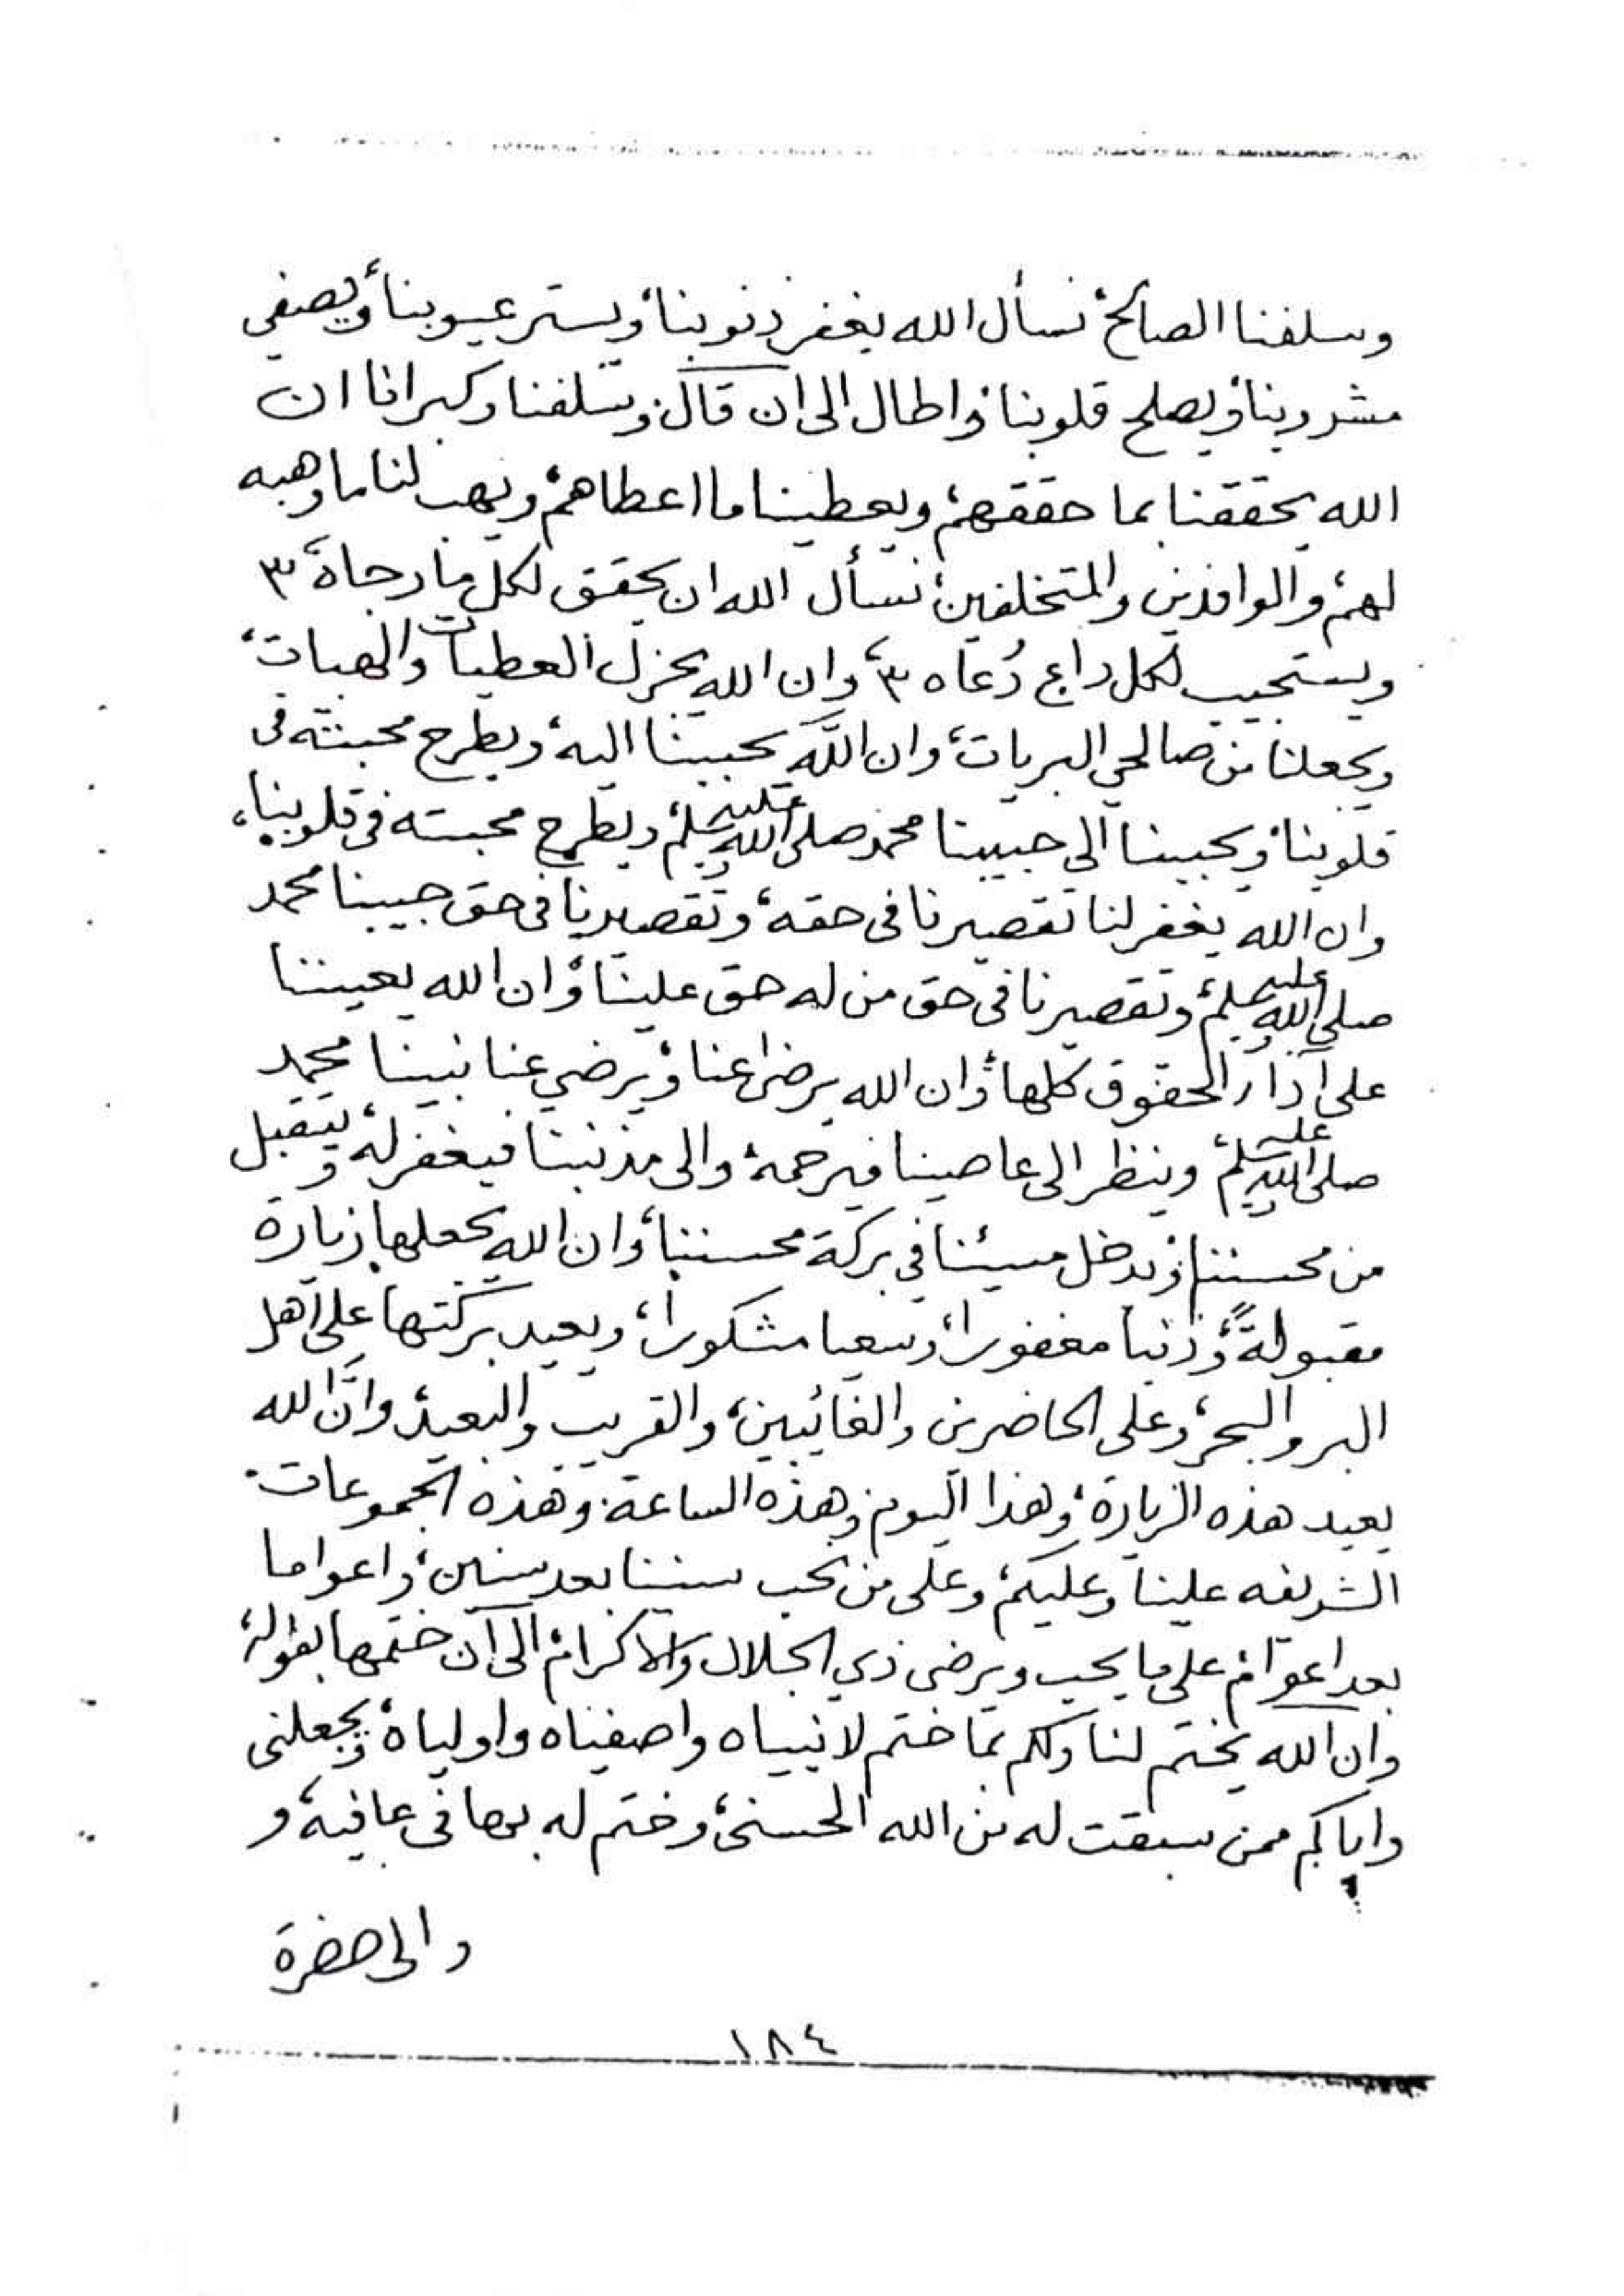 وسلفنا الصالح، نسأل الله يغفر ذنوبنا، ويستر عيوبنا، ويصفي
مشروبنا، ويصلح قلوبنا، واطال الى ان قال: وسلفنا وكبرانا ان
الله يحققنا بما حققهم، ويعطينا ما اعطاهم، ويهب لنا ما وهبه
لهم، والوافدين والمتخلفين، نسأل الله ان يحقق لكل ما رجاه، ٣
ويستجيب لكل داع دُعاه ٣، وان الله يجزل العطيات والهبات،
ويجعلنا من صالحي البريات، وان اللَّه يحببنا اليه، ويطرح محبته في
قلوبنا، ويحببنا الى حبيبنا محمد صلى الله عليه وسلم، ويطرح محبته في قلوبنا،
وان الله يغفر لنا تقصيرنا في حقه، وتقصيرنا في حق حبيبنا محمد
صلى الله عليه وسلم، وتقصيرنا في حق من له حق علينا، وان الله يعيننا
على آداء الحقوق كلها، وان الله يرضى عنا، ويرضي عنا نبينا محمد
صلى الله عليه وسلم، وينظر الى عاصينا فيرحمه، والى مذنبنا فيغفر له، ويتقبل
من محسننا، ويدخل مسيئنا في بركة محسننا، وان الله يجعلها زيارة
مقبولةً، وذنبا مغفورا، وسعيا مشكورا، ويعيد بركتها على اهل
البر والبحر، وعلى الحاضرين والغائبين، والقريب والبعيد، وانَّ الله
يعيد هذه الزيارة، وهذا اليوم، وهذه الساعة، وهذه الجموعات
الشريفه علينا وعليكم، وعلى من نحب سنينا بعد سنين، واعواما
بعد اعوام، على ما يحب ويرضى ذي الجلال والاكرام، الى ان ختمها بقوله:
وان الله يختم لنا ولكم بما ختم لانبياه واصفياه واولياه، ويجعلني
واياكم ممن سبقت له من الله الحسنى، وختم له بها في عافية، و
والى حضرة
١٨٤